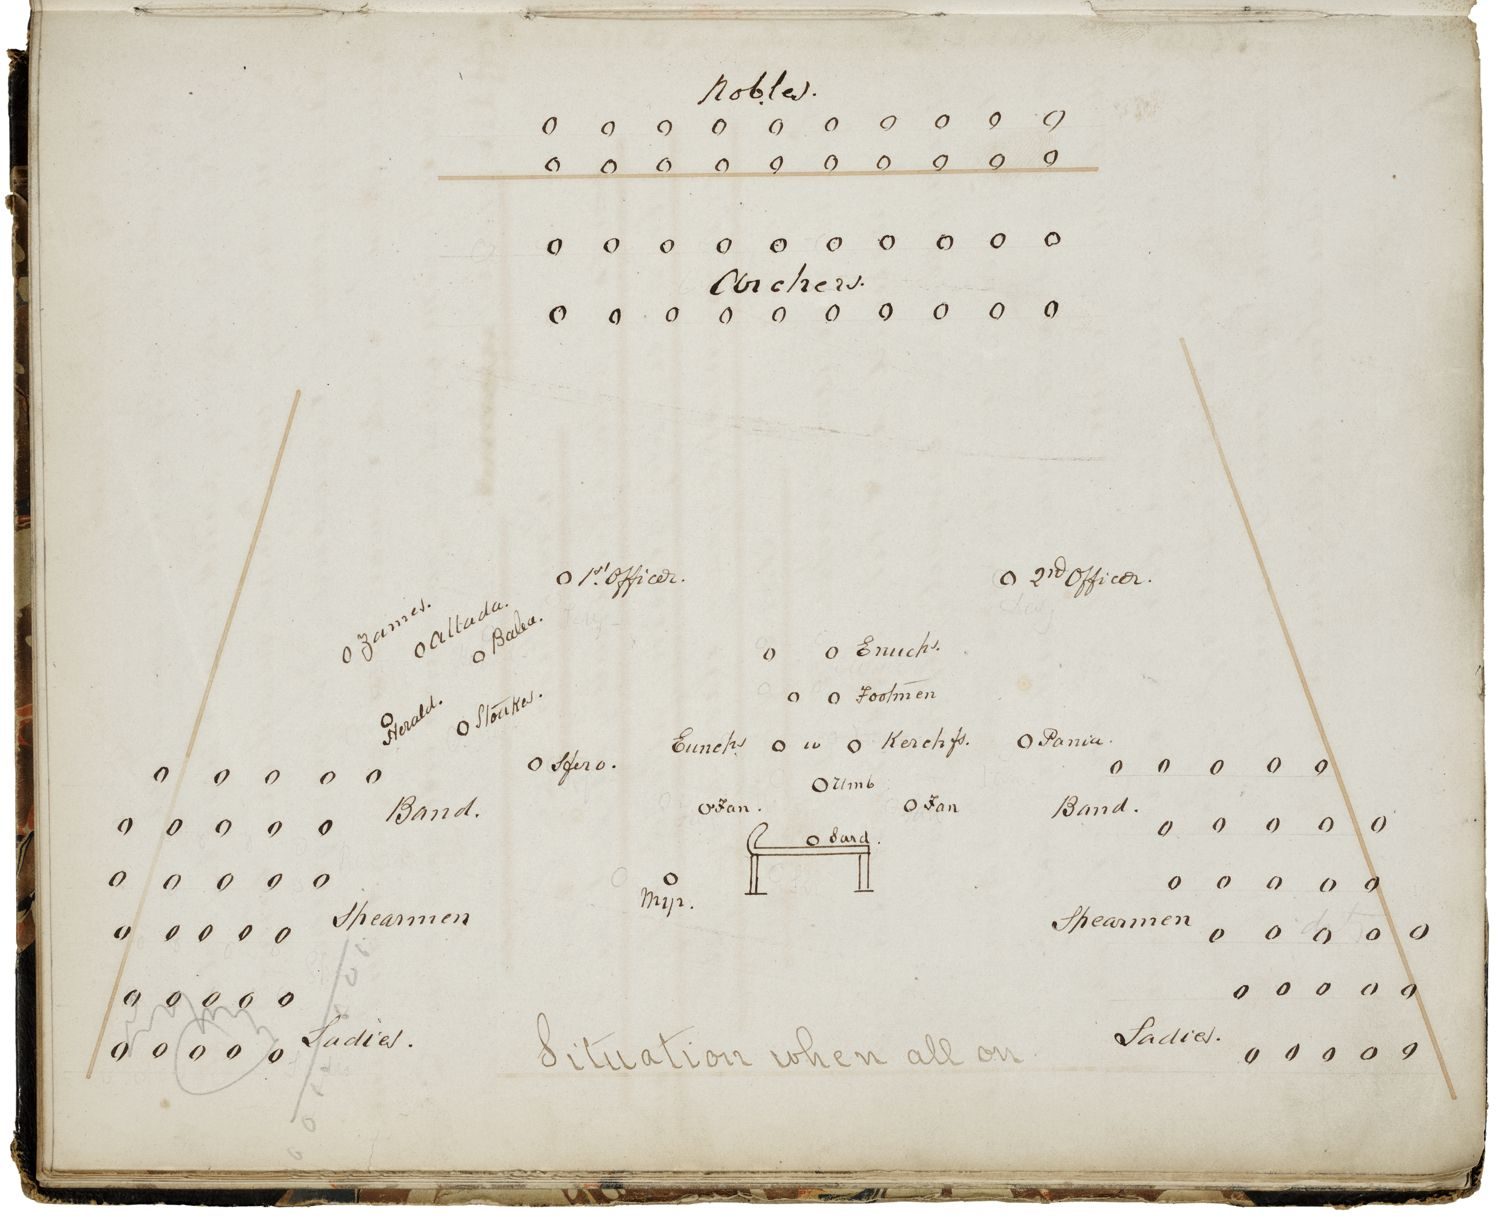 Nobles.
Archers.
1st Officer.
2nd Officer.
Zames.
Altada.
Balea.
Enuchs.
Footmen
Herald.
Stoukes.
Eunchs w Kerchfs.
Pania.
Sfero.
Umb
Fan.
Fan
Band.
Band.
Sard.
Myr.
Spearmen
Spearmen
Ladies.
Ladies.
Situation when all on